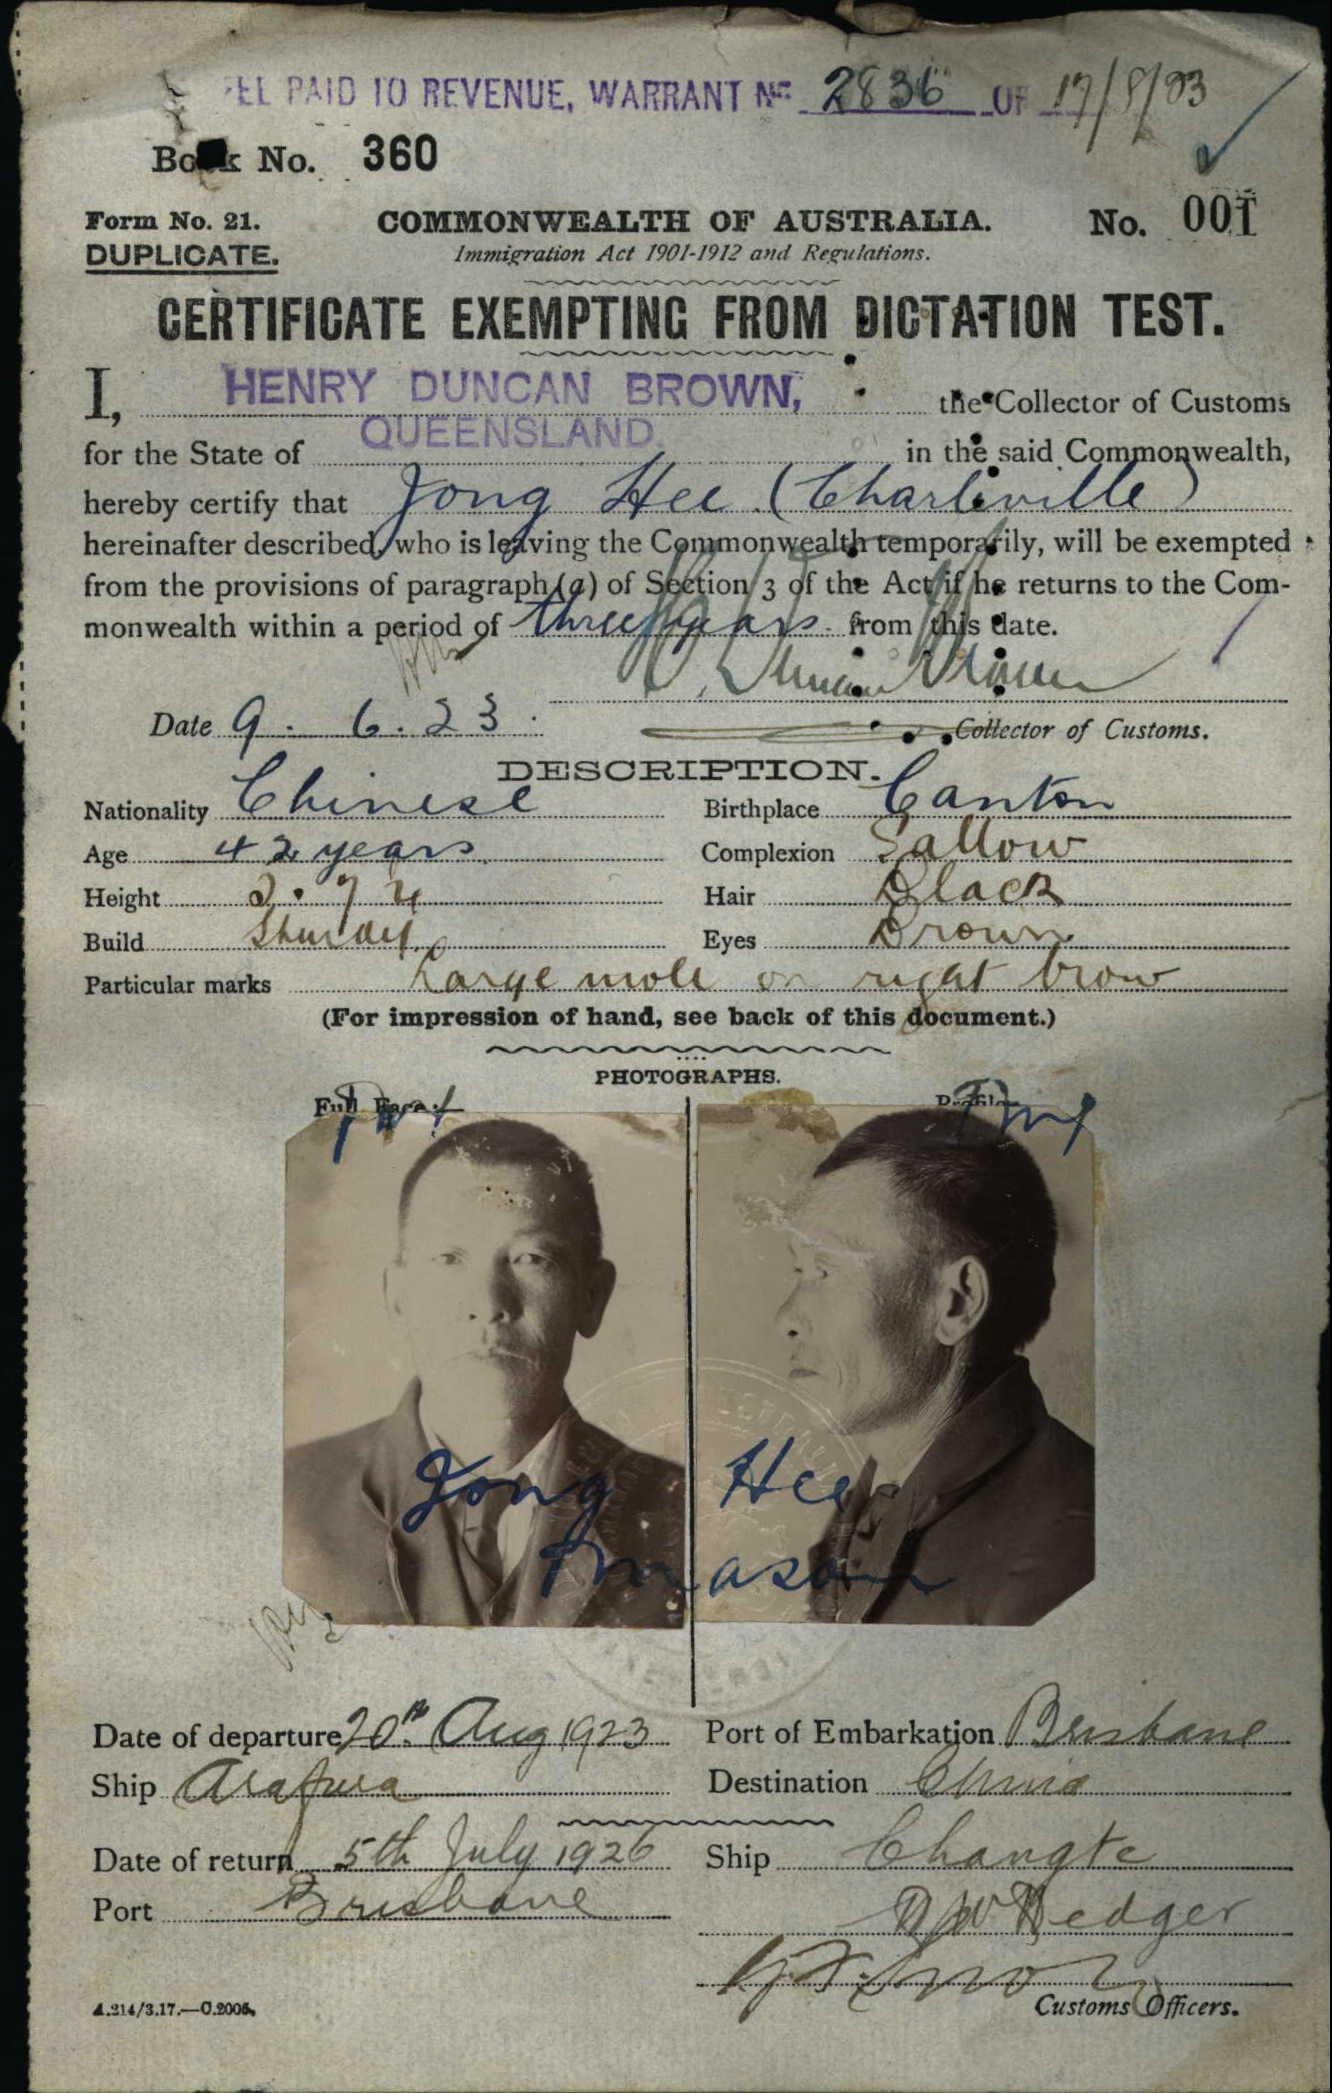 FEE PAID TO REVENUE, WARRANT No 2836 OF 17/8/23
Book No. 360
Form No. 21. COMMONWEALTH OF AUSTRALIA. No. 001
DUPLICATE. Immigration Act 1901-1912 and Regulations.
CERTIFICATE EXEMPTING FROM DICTATION TEST.
I, HENRY DUNCAN BROWN, the Collector of Customs
for the State of QUEENSLAND. in the said Commonwealth,
hereby certify that Jong Hee (Charleville)
hereinafter described, who is leaving the Commonwealth temporarily, will be exempted
from the provisions of paragraph (a) of Section 3 of the Act if he returns to the Com-
monwealth within a period of three years from this date.
Duncan Brown
Date 9. 6. 23. Collector of Customs.
DESCRIPTION.
Nationality Chinese Birthplace Canton
Age 42 years Complexion Sallow
Height Hair Black
Build Sturdy Eyes Brown
Particular marks Large mole on right brow
(For impression of hand, see back of this document.)
PHOTOGRAPHS.
Full Face:— Profile
Jong Hee
Date of departure 20th Aug 1923 Port of Embarkation Brisbane
Ship Arafura Destination China
Date of return 5th July 1926 Ship Changte
Port Brisbane Hedger
Customs Officers.
A.214/3.17.—C.2005.